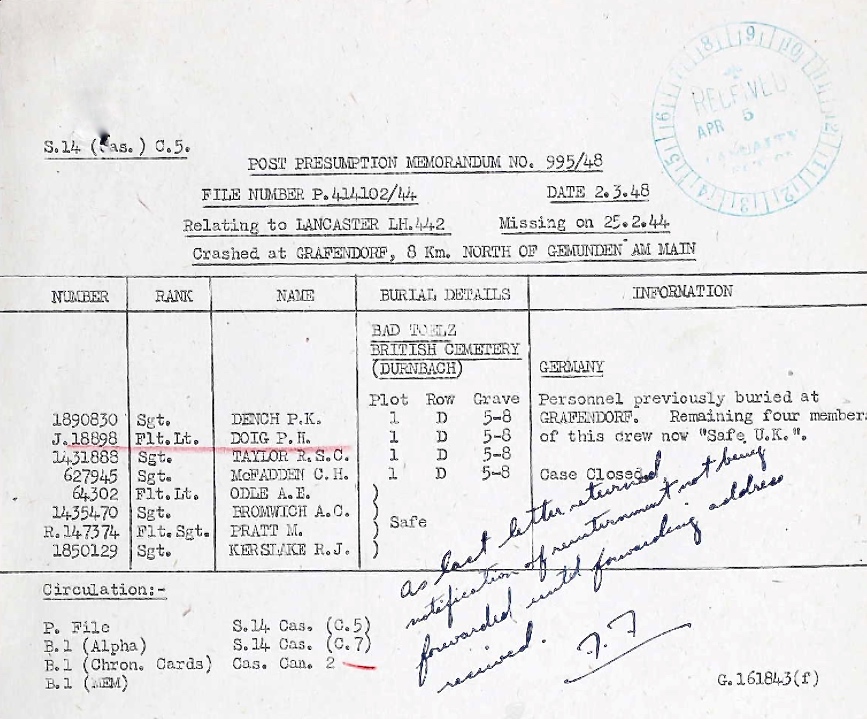 S.14 (Cas.) C.5.
RECEIVED
APR 5
POST PRESUMPTION MEMORANDUM NO. 995/48
FILE NUMBER P.414102/44 DATE 2.3.48
Relating to LANCASTER LH.442 Missing on 25.2.44
Crashed at GRAFENDORF, 8 Km. NORTH OF GEMUNDEN AM MAIN
NUMBER RANK NAME BURIAL DETAILS INFORMATION
BAD TOELZ
BRITISH CEMETERY
(DURNBACH) GERMANY
Plot Row Grave Personnel previously buried at
1890830 Sgt. DENCH P.K. 1 D 5-8 GRAFENDORF. Remaining four members
J.18898 Flt.Lt. DOIG P.H. 1 D 5-8 of this crew now "Safe U.K.".
1431888 Sgt. TAYLOR R.S.C. 1 D 5-8
627945 Sgt. McFADDEN C.H. 1 D 5-8 Case Closed.
64302 Flt.Lt. ODLE A.E. )
1435470 Sgt. BROMWICH A.C. )
R.147374 Flt.Sgt. PRATT M. ) Safe
1850129 Sgt. KERSLAKE R.J. )
as last letter returned
notification of reinternment not being
forwarded until forwarding address
received.
F.F
Circulation:-
P. File S.14 Cas. (C.5)
B.1 (Alpha) S.14 Cas. (C.7)
B.1 (Chron. Cards) Cas. Can. 2
B.1 (MEM)
G.161843(f)